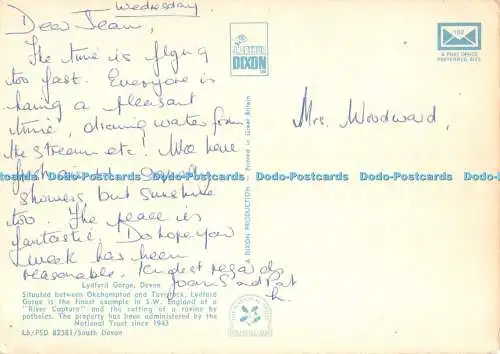 Wednesday.
Dear Jean,
The time is flying
too fast. Everyone is
having a pleasant
time, drawing water from
the stream etc! We have
showers but sunshine
too. The peace is
fantastic. Do hope you
week has been
reasonable. Kindest regards
Joan and Pat
Mrs. Woodward,
DIXON
A POST OFFICE
PREFERRED SIZE
A DIXON PRODUCTION - Printed in Great Britain
Dodo-Postcards Dodo-Postcards Dodo-Postcards Dodo-Postcards Dodo-Postcards
Lydford Gorge, Devon
Situated between Okehampton and Tavistock, Lydford
Gorge is the finest example in S.W. England of a
"River Capture" and the cutting of a ravine by
potholes. The property has been administered by the
National Trust since 1943
L6/PSD 82581/South Devon